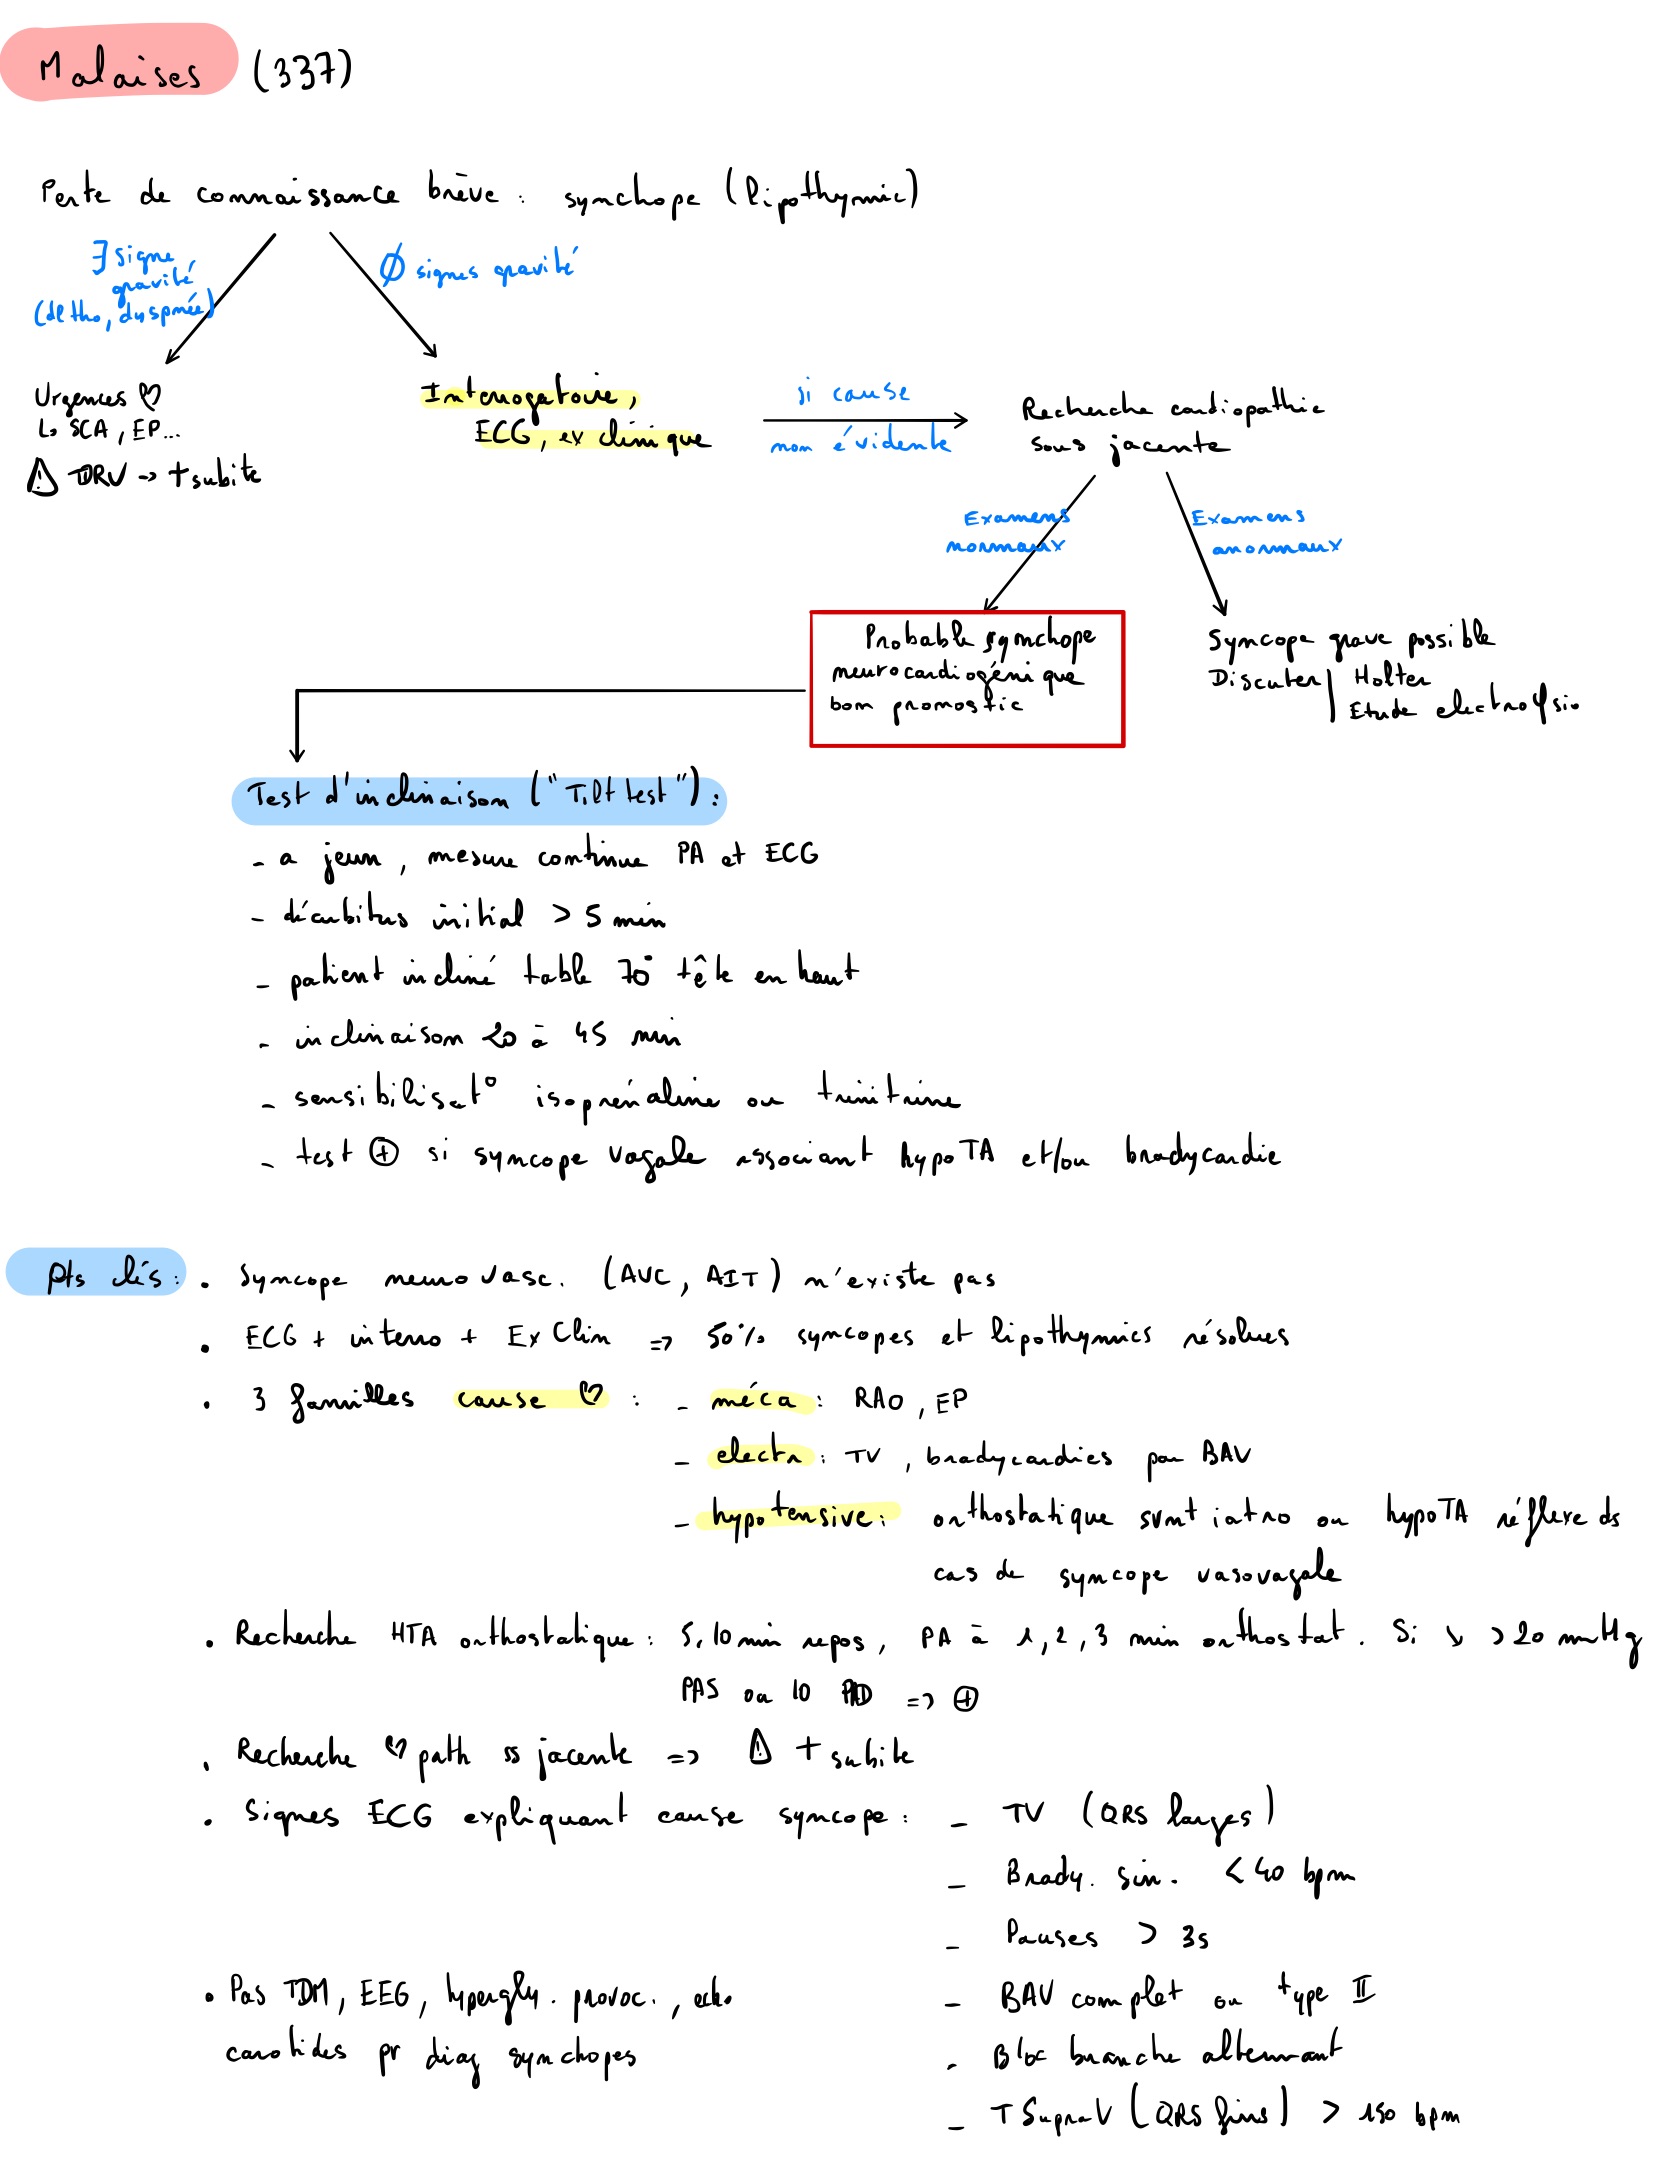 Malaises (337)
Perte de connaissance brève : synchope (lipothymie)
∃ signe
gravité
(dl tho, dyspnée)
Ø signes gravité
Urgences ♡
↳ SCA, EP...
⚠ TDRV -> + subite
Interrogatoire,
ECG, ex clinique
si cause
non évidente
Recherche cardiopathie
sous jacente
Examens
normaux
Examens
anormaux
Probable synchope
neurocardiogénique
bon pronostic
Syncope grave possible
Discuter | Holter
Etude electroφsio
Test d'inclinaison ("Tilt test") :
- a jeun, mesure continue PA et ECG
- décubitus initial > 5 min
- patient incliné table 70° tête en haut
- inclinaison 20 à 45 min
- sensibilisat° isoprénaline ou trinitrine
- test ⊕ si syncope vagale associant hypoTA et/ou bradycardie
Pts clés :
• Syncope neuro vasc. (AVC, AIT) n'existe pas
• ECG + interro + Ex Clin => 50% syncopes et lipothymies résolues
• 3 familles cause ♡ : - méca : RAO, EP
- electr : TV, bradycardies par BAV
- hypotensive : orthostatique svnt iatro ou hypoTA réflexe ds
cas de syncope vasovagale
• Recherche HTA orthostatique : 5, 10 min repos, PA à 1, 2, 3 min orthostat. Si ↘ > 20 mmHg
PAS ou 10 PAD => ⊕
• Recherche ♡ path ss jacente => ⚠ + subite
• Signes ECG expliquant cause syncope : - TV (QRS larges)
- Brady. sin. < 40 bpm
- Pauses > 3s
- BAV complet ou type II
- Bloc branche alternant
- T SupraV (QRS fins) > 150 bpm
• Pas TDM, EEG, hypergly. provoc., echo
carotides pr diag synchopes